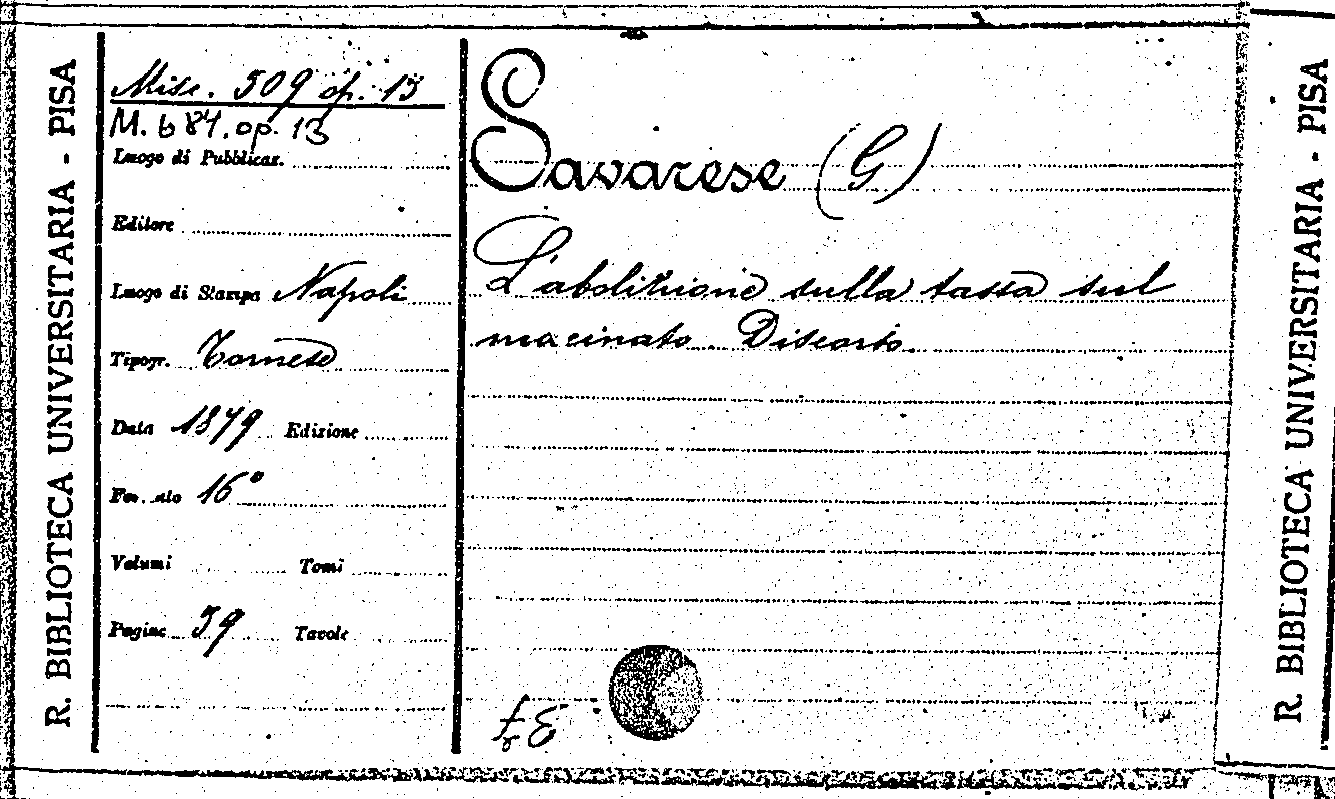 R. BIBLIOTECA UNIVERSITARIA - PISA
Misc. 509 op. 13
M. b 84. op. 13
Luogo di Pubblicaz.
Editore
Luogo di Stampa Napoli
Tipogr. Tornese
Data 1879 Edizione
Formato 16°
Volumi Tomi
Pagine 39 Tavole
Savarese (G)
L'abolizione sulla tassa sul
macinato. Discorso.
R. BIBLIOTECA UNIVERSITARIA - PISA